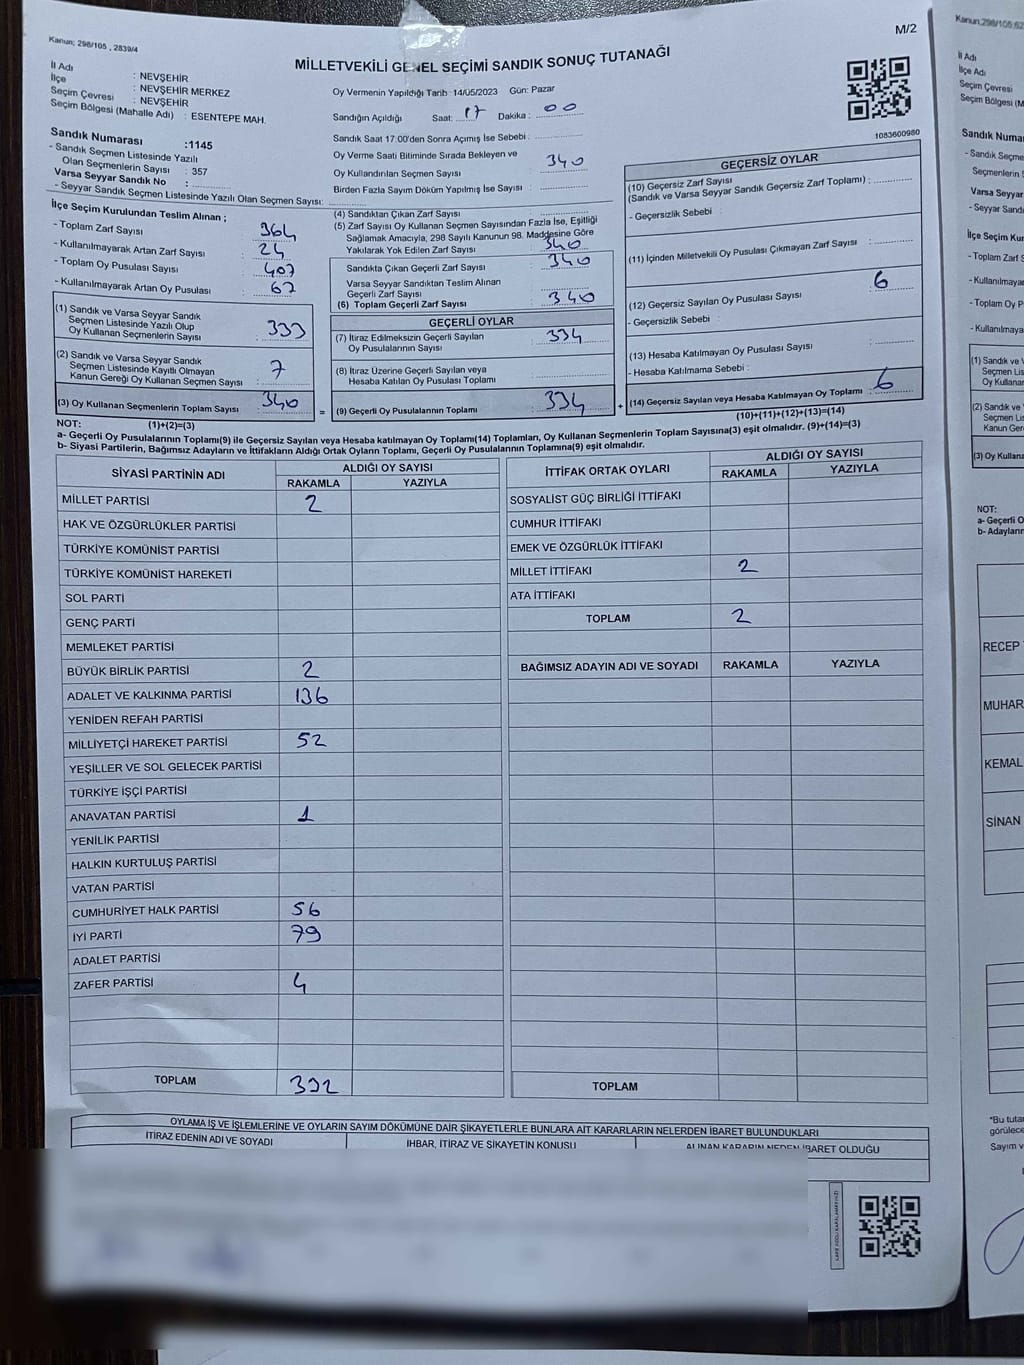 Kanun; 298/105 , 2839/4
M/2
MİLLETVEKİLİ GENEL SEÇİMİ SANDIK SONUÇ TUTANAĞI
İl Adı : NEVŞEHİR
İlçe : NEVŞEHİR MERKEZ
Seçim Çevresi : NEVŞEHİR
Seçim Bölgesi (Mahalle Adı) : ESENTEPE MAH.
Sandık Numarası :1145
- Sandık Seçmen Listesinde Yazılı
Olan Seçmenlerin Sayısı : 357
Varsa Seyyar Sandık No :
- Seyyar Sandık Seçmen Listesinde Yazılı Olan Seçmen Sayısı:
Oy Vermenin Yapıldığı Tarih : 14/05/2023 Gün: Pazar
Sandığın Açıldığı Saat: 17 Dakika : 00
Sandık Saat 17:00'den Sonra Açımış İse Sebebi :
Oy Verme Saati Bitiminde Sırada Bekleyen ve
Oy Kullandırılan Seçmen Sayısı : 340
Birden Fazla Sayım Döküm Yapılmış İse Sayısı :
1083600980
İlçe Seçim Kurulundan Teslim Alınan ;
- Toplam Zarf Sayısı : 364
- Kullanılmayarak Artan Zarf Sayısı : 24
- Toplam Oy Pusulası Sayısı : 407
- Kullanılmayarak Artan Oy Pusulası : 67
(1) Sandık ve Varsa Seyyar Sandık
Seçmen Listesinde Yazılı Olup
Oy Kullanan Seçmenlerin Sayısı : 333
(2) Sandık ve Varsa Seyyar Sandık
Seçmen Listesinde Kayıtlı Olmayan
Kanun Gereği Oy Kullanan Seçmen Sayısı : 7
(3) Oy Kullanan Seçmenlerin Toplam Sayısı : 340
(1)+(2)=(3)
(4) Sandıktan Çıkan Zarf Sayısı
(5) Zarf Sayısı Oy Kullanan Seçmen Sayısından Fazla İse, Eşitliği
Sağlamak Amacıyla, 298 Sayılı Kanunun 98. Maddesine Göre
Yakılarak Yok Edilen Zarf Sayısı : 340
Sandıkta Çıkan Geçerli Zarf Sayısı : 340
Varsa Seyyar Sandıktan Teslim Alınan
Geçerli Zarf Sayısı
(6) Toplam Geçerli Zarf Sayısı : 340
GEÇERLİ OYLAR
(7) İtiraz Edilmeksizin Geçerli Sayılan
Oy Pusulalarının Sayısı : 334
(8) İtiraz Üzerine Geçerli Sayılan veya
Hesaba Katılan Oy Pusulası Toplamı
= (9) Geçerli Oy Pusulalarının Toplamı : 334
GEÇERSİZ OYLAR
(10) Geçersiz Zarf Sayısı
(Sandık ve Varsa Seyyar Sandık Geçersiz Zarf Toplamı) :
- Geçersizlik Sebebi :
(11) İçinden Milletvekili Oy Pusulası Çıkmayan Zarf Sayısı :
(12) Geçersiz Sayılan Oy Pusulası Sayısı : 6
- Geçersizlik Sebebi :
(13) Hesaba Katılmayan Oy Pusulası Sayısı :
- Hesaba Katılmama Sebebi :
+ (14) Geçersiz Sayılan veya Hesaba Katılmayan Oy Toplamı : 6
(10)+(11)+(12)+(13)=(14)
NOT:
a- Geçerli Oy Pusulalarının Toplamı(9) ile Geçersiz Sayılan veya Hesaba katılmayan Oy Toplamı(14) Toplamları, Oy Kullanan Seçmenlerin Toplam Sayısına(3) eşit olmalıdır. (9)+(14)=(3)
b- Siyasi Partilerin, Bağımsız Adayların ve İttifakların Aldığı Oyların Toplamı, Geçerli Oy Pusulalarının Toplamına(9) eşit olmalıdır.
SİYASİ PARTİNİN ADI
ALDIĞI OY SAYISI
RAKAMLA YAZIYLA
MİLLET PARTİSİ 2
HAK VE ÖZGÜRLÜKLER PARTİSİ
TÜRKİYE KOMÜNİST PARTİSİ
TÜRKİYE KOMÜNİST HAREKETİ
SOL PARTİ
GENÇ PARTİ
MEMLEKET PARTİSİ
BÜYÜK BİRLİK PARTİSİ 2
ADALET VE KALKINMA PARTİSİ 136
YENİDEN REFAH PARTİSİ
MİLLİYETÇİ HAREKET PARTİSİ 52
YEŞİLLER VE SOL GELECEK PARTİSİ
TÜRKİYE İŞÇİ PARTİSİ
ANAVATAN PARTİSİ 1
YENİLİK PARTİSİ
HALKIN KURTULUŞ PARTİSİ
VATAN PARTİSİ
CUMHURİYET HALK PARTİSİ 56
İYİ PARTİ 79
ADALET PARTİSİ
ZAFER PARTİSİ 4
TOPLAM 332
İTTİFAK ORTAK OYLARI
ALDIĞI OY SAYISI
RAKAMLA YAZIYLA
SOSYALİST GÜÇ BİRLİĞİ İTTİFAKI
CUMHUR İTTİFAKI
EMEK VE ÖZGÜRLÜK İTTİFAKI
MİLLET İTTİFAKI 2
ATA İTTİFAKI
TOPLAM 2
BAĞIMSIZ ADAYIN ADI VE SOYADI RAKAMLA YAZIYLA
TOPLAM
OYLAMA İŞ VE İŞLEMLERİNE VE OYLARIN SAYIM DÖKÜMÜNE DAİR ŞİKAYETLERLE BUNLARA AİT KARARLARIN NELERDEN İBARET BULUNDUKLARI
İTİRAZ EDENİN ADI VE SOYADI
İHBAR, İTİRAZ VE ŞİKAYETİN KONUSU
ALINAN KARARIN NEDEN İBARET OLDUĞU
Kanun;298/105
İl Adı
İlçe Adı
Seçim Çevresi
Sandık Numa
RECEP
MUHAR
KEMAL
SİNAN